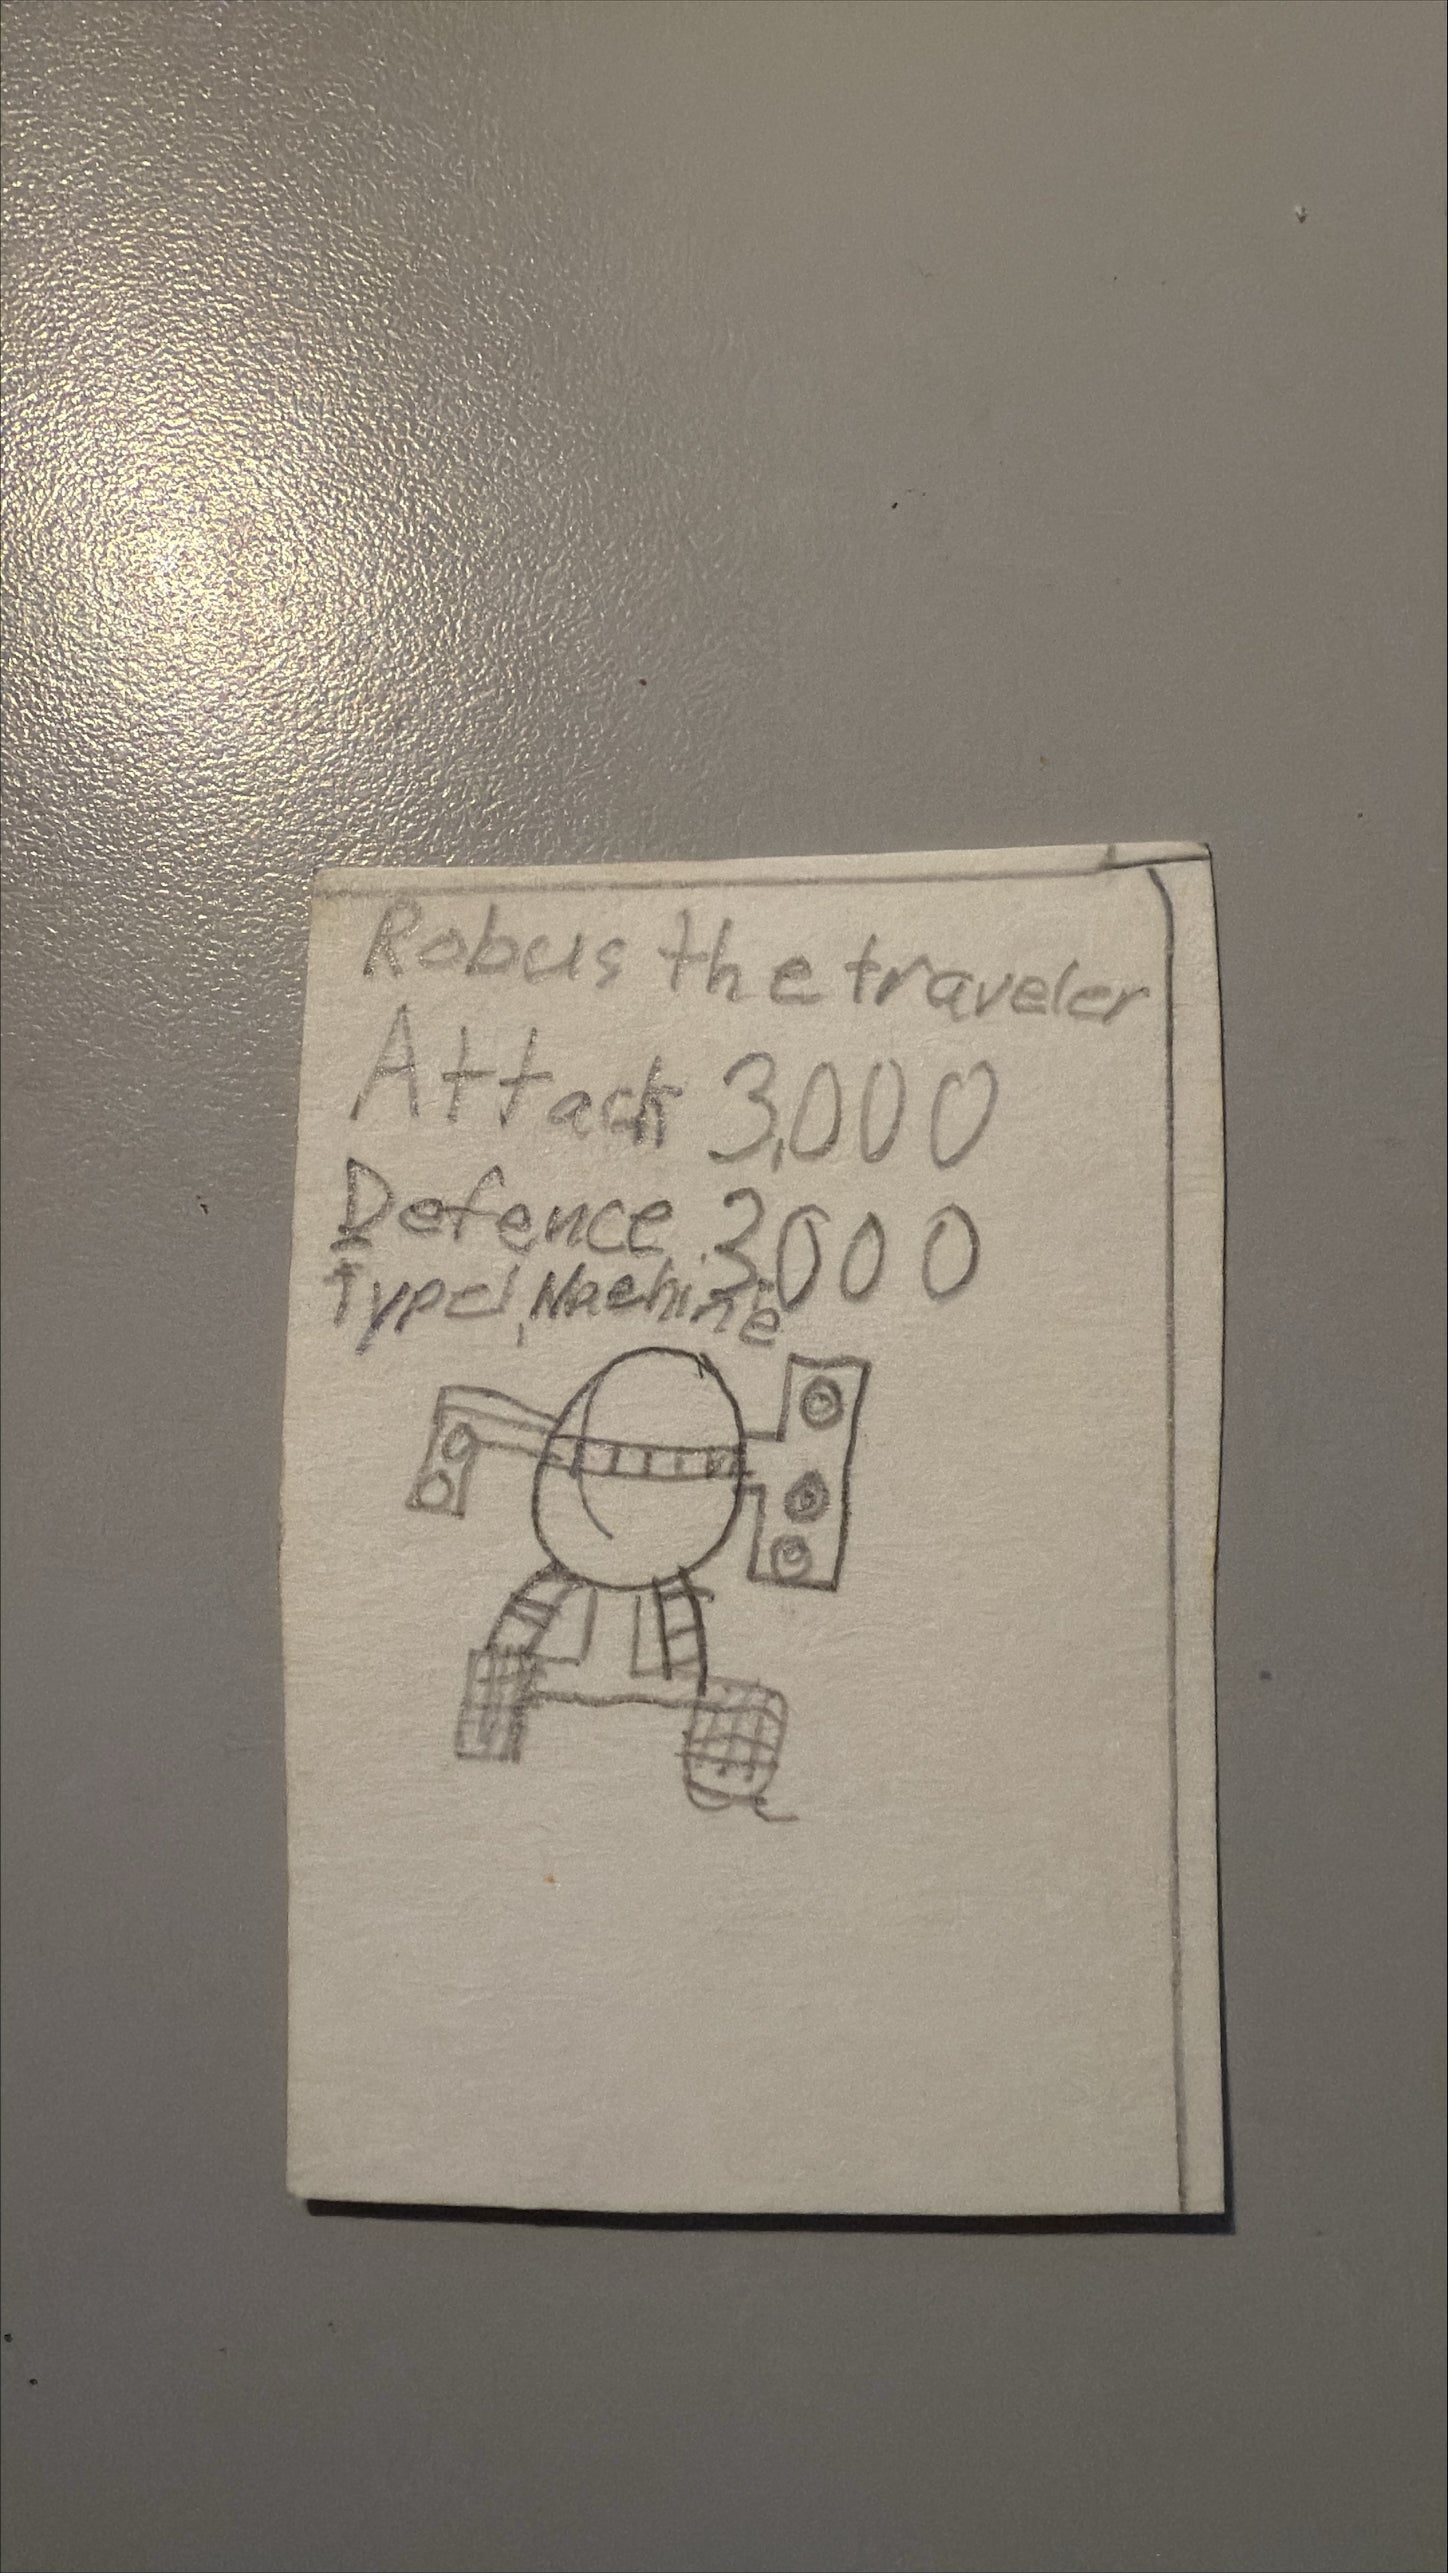 Robus the traveler
Attack 3,000
Defence 3,000
Type, Machine